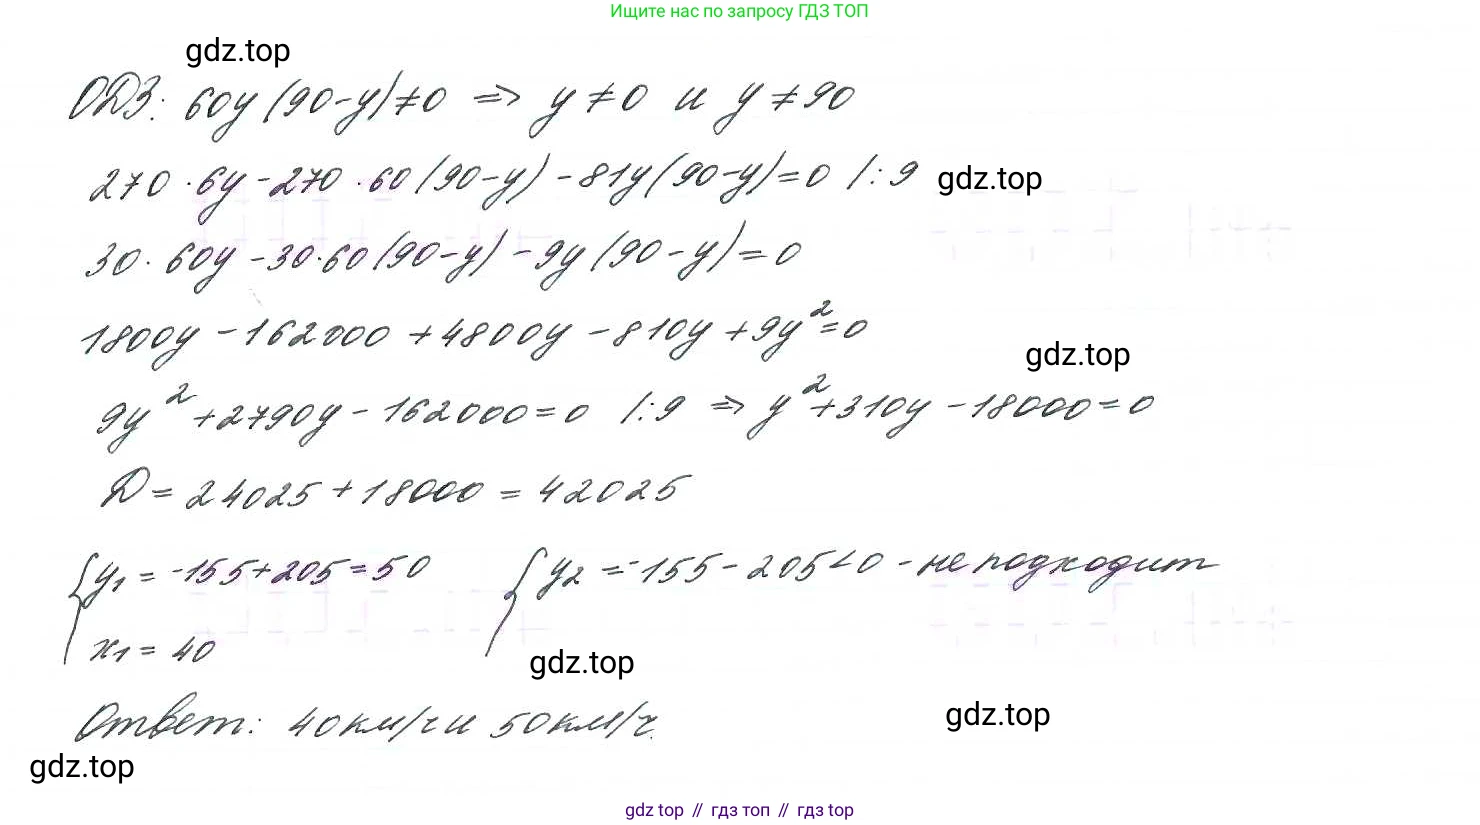 Ищите нас по запросу ГДЗ ТОП
gdz.top
ОДЗ: 60y(90-y)≠0 ⇒ y≠0 и y≠90
270·6y-270·60(90-y)-81y(90-y)=0 /:9
gdz.top
30·60y-30·60(90-y)-9y(90-y)=0
1800y-162000+4800y-810y+9y²=0
gdz.top
9y²+2790y-162000=0 /:9 ⇒ y²+310y-18000=0
D=24025+18000=42025
{y₁=-155+205=50 {y₂=-155-205<0 - не подходит
x₁=40
gdz.top
Ответ: 40км/ч и 50км/ч.
gdz.top
gdz.top
gdz top // гдз топ // gdz top